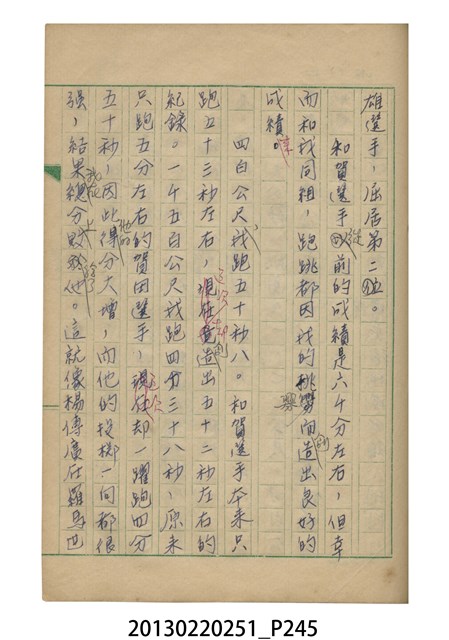 雄選手，屈居第二位。
和賀選手從前的成績是六千分左右，但幸
而和我同組，跑跳都因我的挑釁而造出良好的
成績。
四百公尺我跑五十秒八。和賀選手本來只
跑五十三秒左右，這次却造出五十二秒左右的
紀錄。一千五百公尺我跑四分三十八秒，原來
只跑五分左右的賀田選手，這次却一躍跑四分
五十秒，因此他的得分大增，而他的投擲一向都很
强，結果我在總分上輸了他。這就像楊傳廣在羅馬巴
20130220251_P245